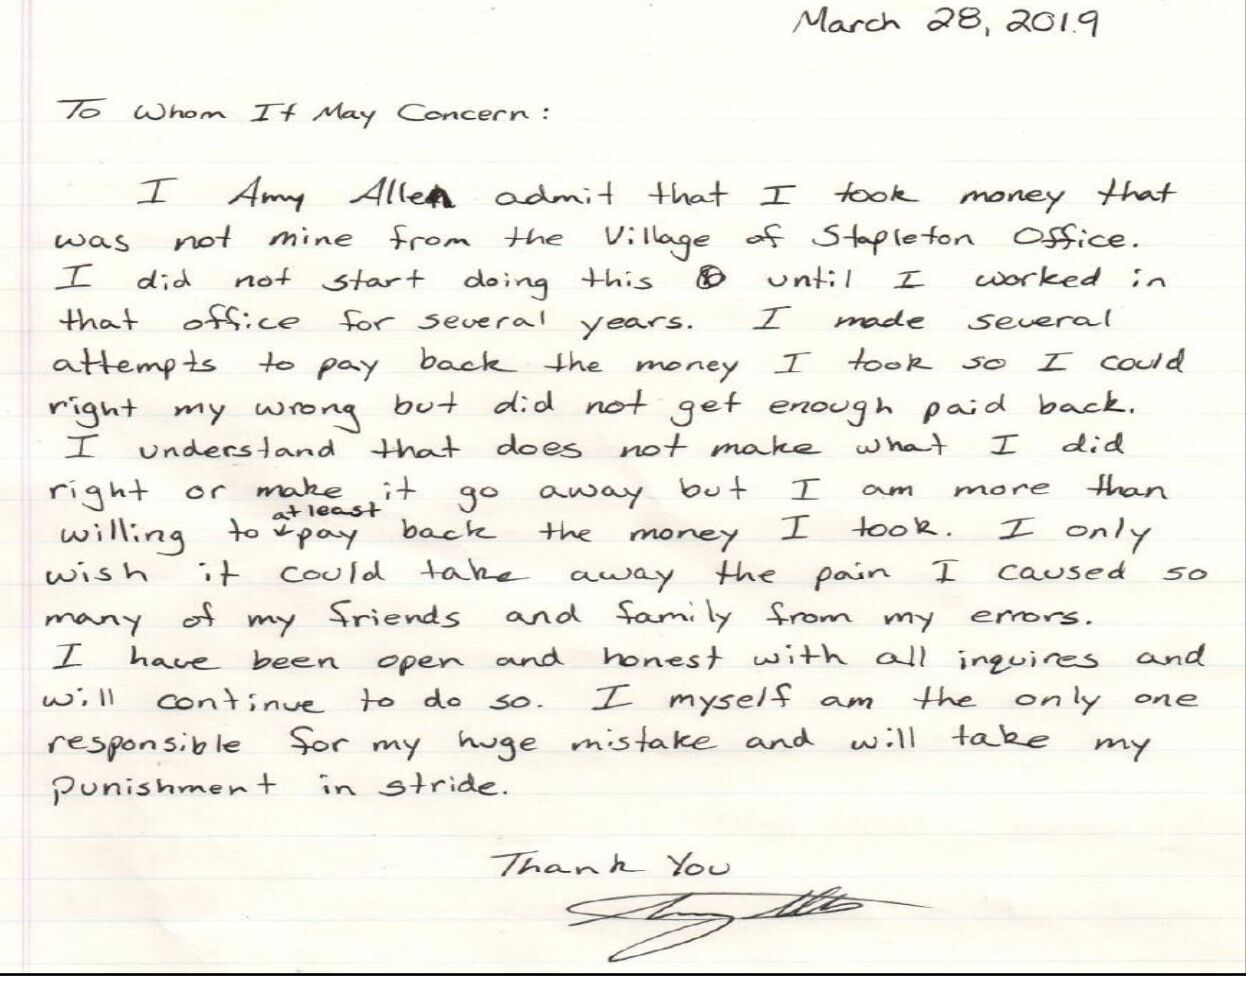 March 28, 2019
To Whom It May Concern:
I Amy Allen admit that I took money that
was not mine from the Village of Stapleton Office.
I did not start doing this until I worked in
that office for several years. I made several
attempts to pay back the money I took so I could
right my wrong but did not get enough paid back.
I understand that does not make what I did
right or make it go away but I am more than
at least
willing to pay back the money I took. I only
wish it could take away the pain I caused so
many of my friends and family from my errors.
I have been open and honest with all inquires and
will continue to do so. I myself am the only one
responsible for my huge mistake and will take my
punishment in stride.
Thank You
Amy Allen